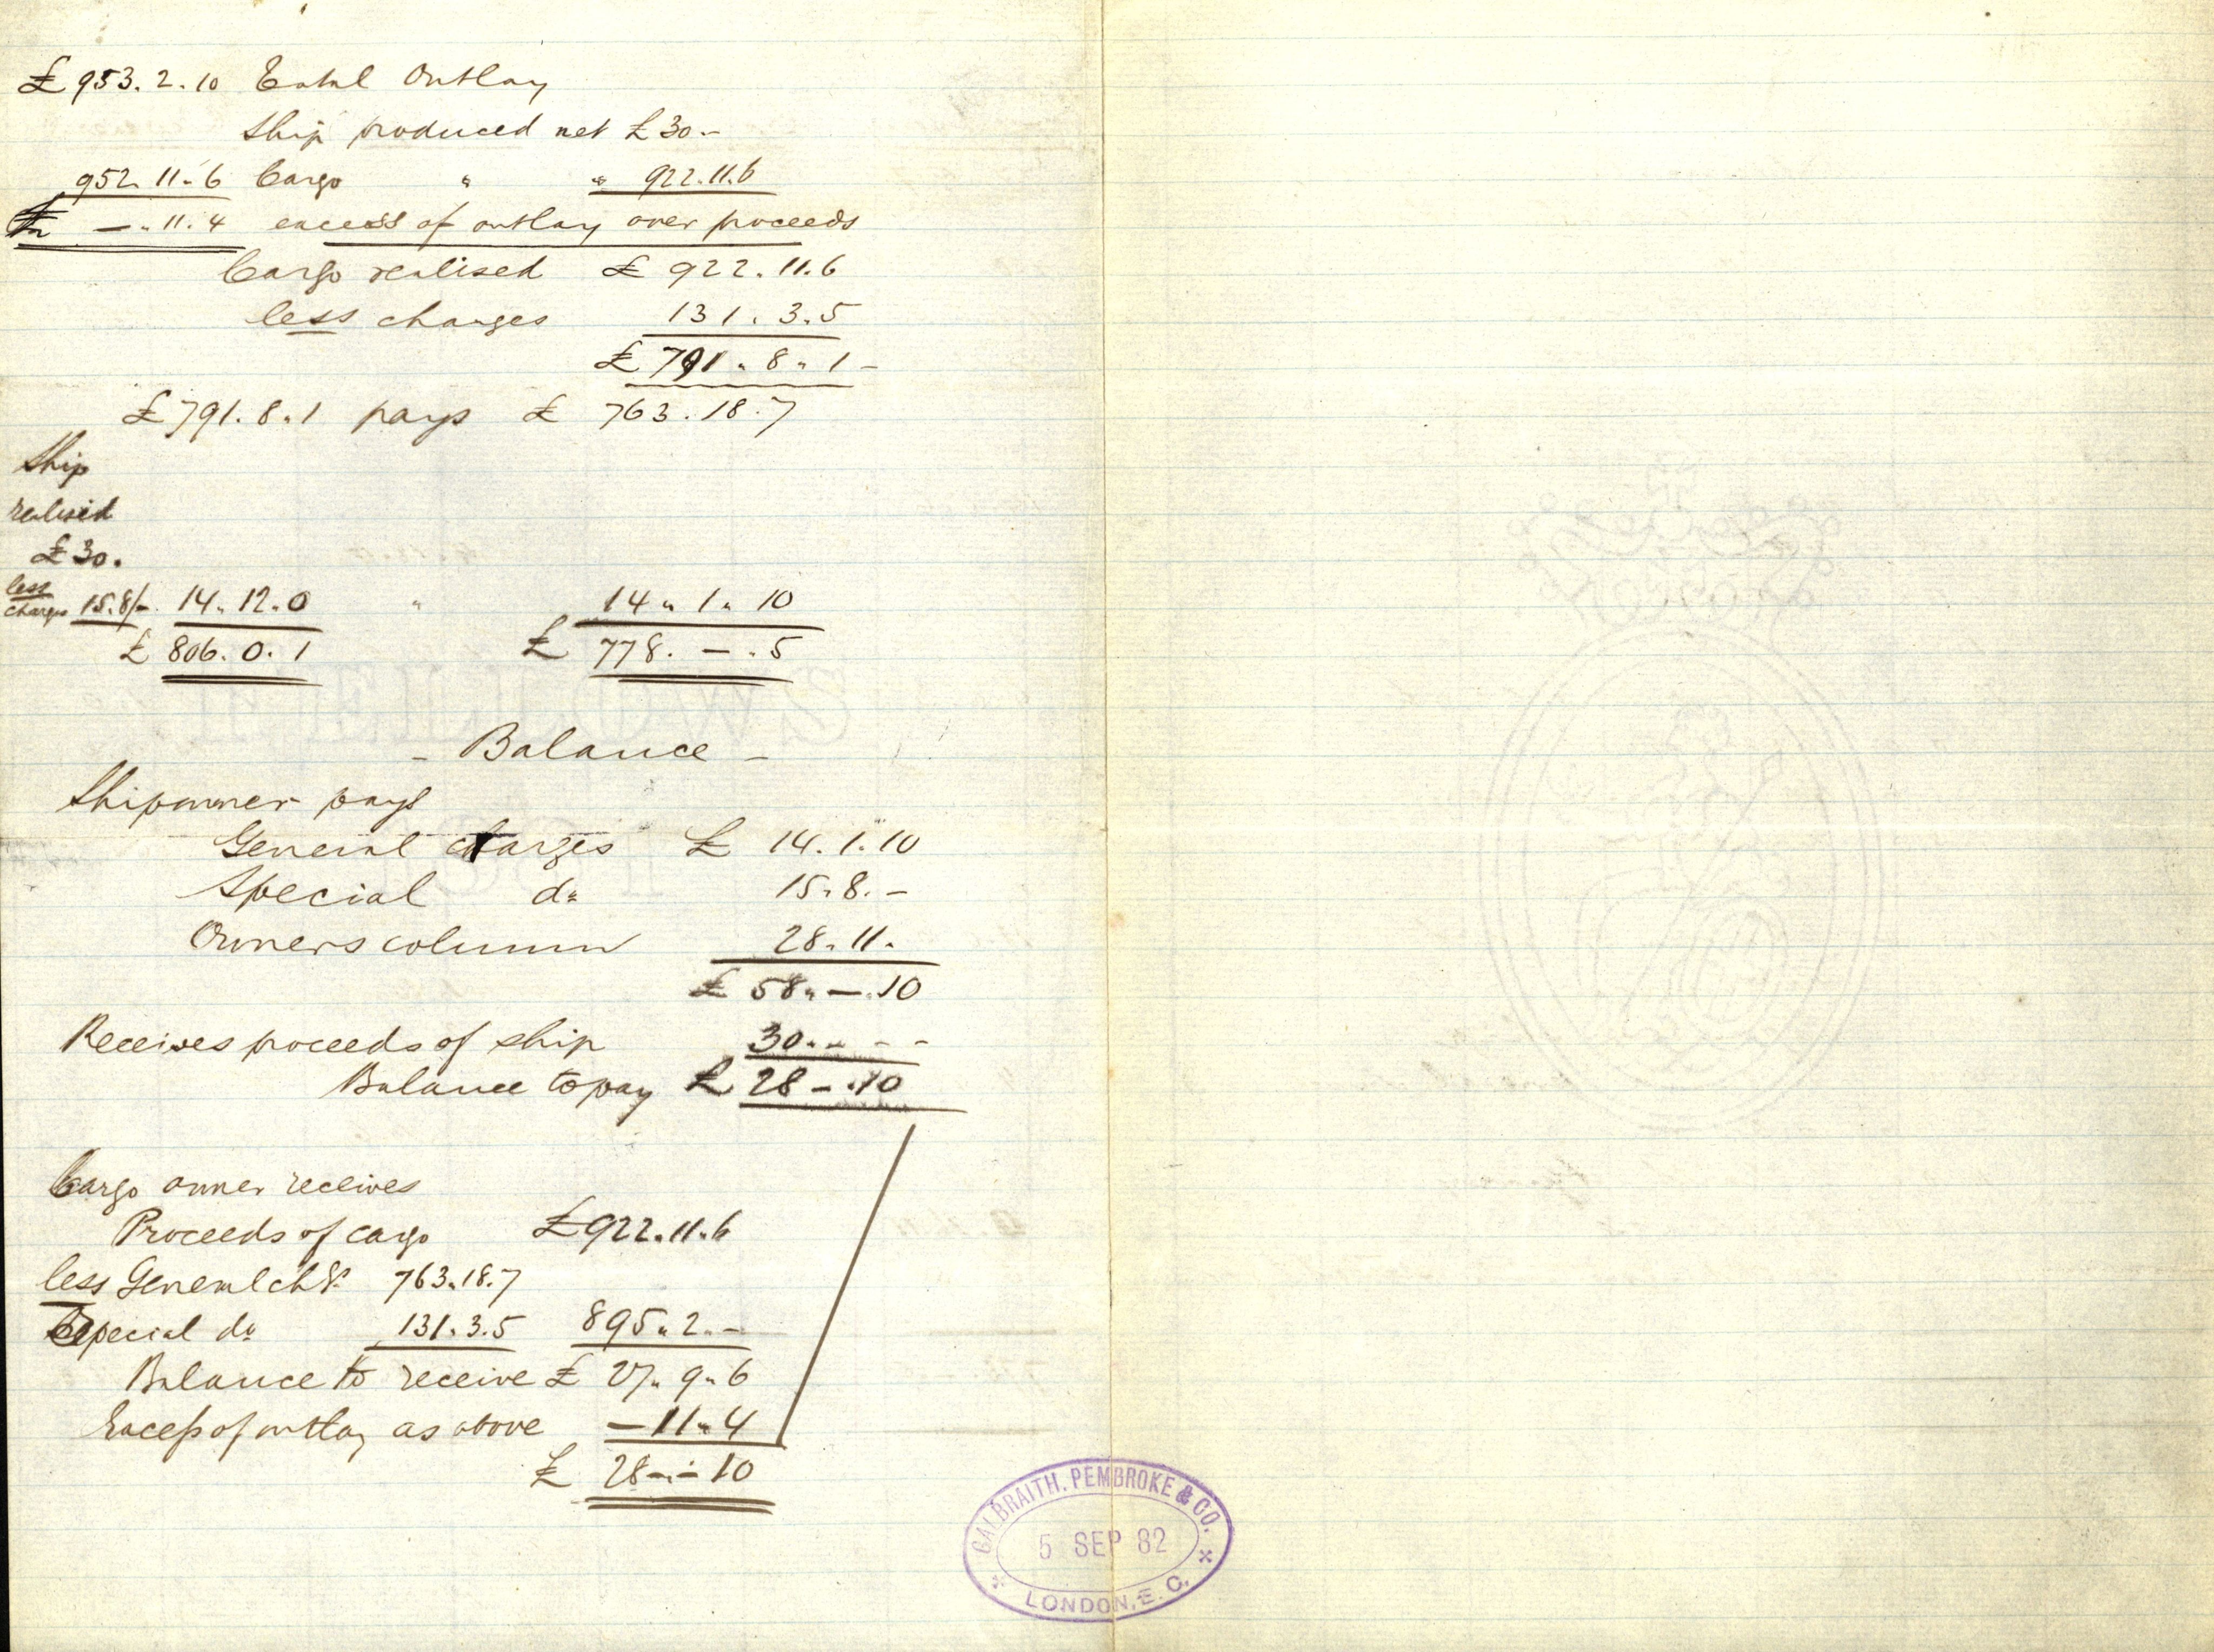 £953.2.10 Total Outlay
Ship produced net £30.-
952.11.6 Cargo " " 922.11.6
-.11.4 excess of outlay over proceeds
Cargo realised £ 922.11.6
less charges 131.3.5
£ 791.8.1-
£791.8.1 pays £ 763.18.7
Ship
realised
£30.
less
charges 15.8/- 14.12.0 " 14.1.10
£ 806.0.1 £ 778.-.5
- Balance -
Shipowner pays
General charges £ 14.1.10
Special do 15.8.-
Owners column 28.11.
£ 58.-.10
Receives proceeds of ship 30.- - -
Balance to pay £ 28-.10
Cargo owner receives
Proceeds of cargo £922.11.6
less General chgs 763.18.7
Special do 131.3.5 895.2.-
Balance to receive £ 27.9.6
Excess of outlay as above -11.4
£ 28-.-10
GALBRAITH, PEMBROKE & CO.
5 SEP 82
LONDON, E.C.